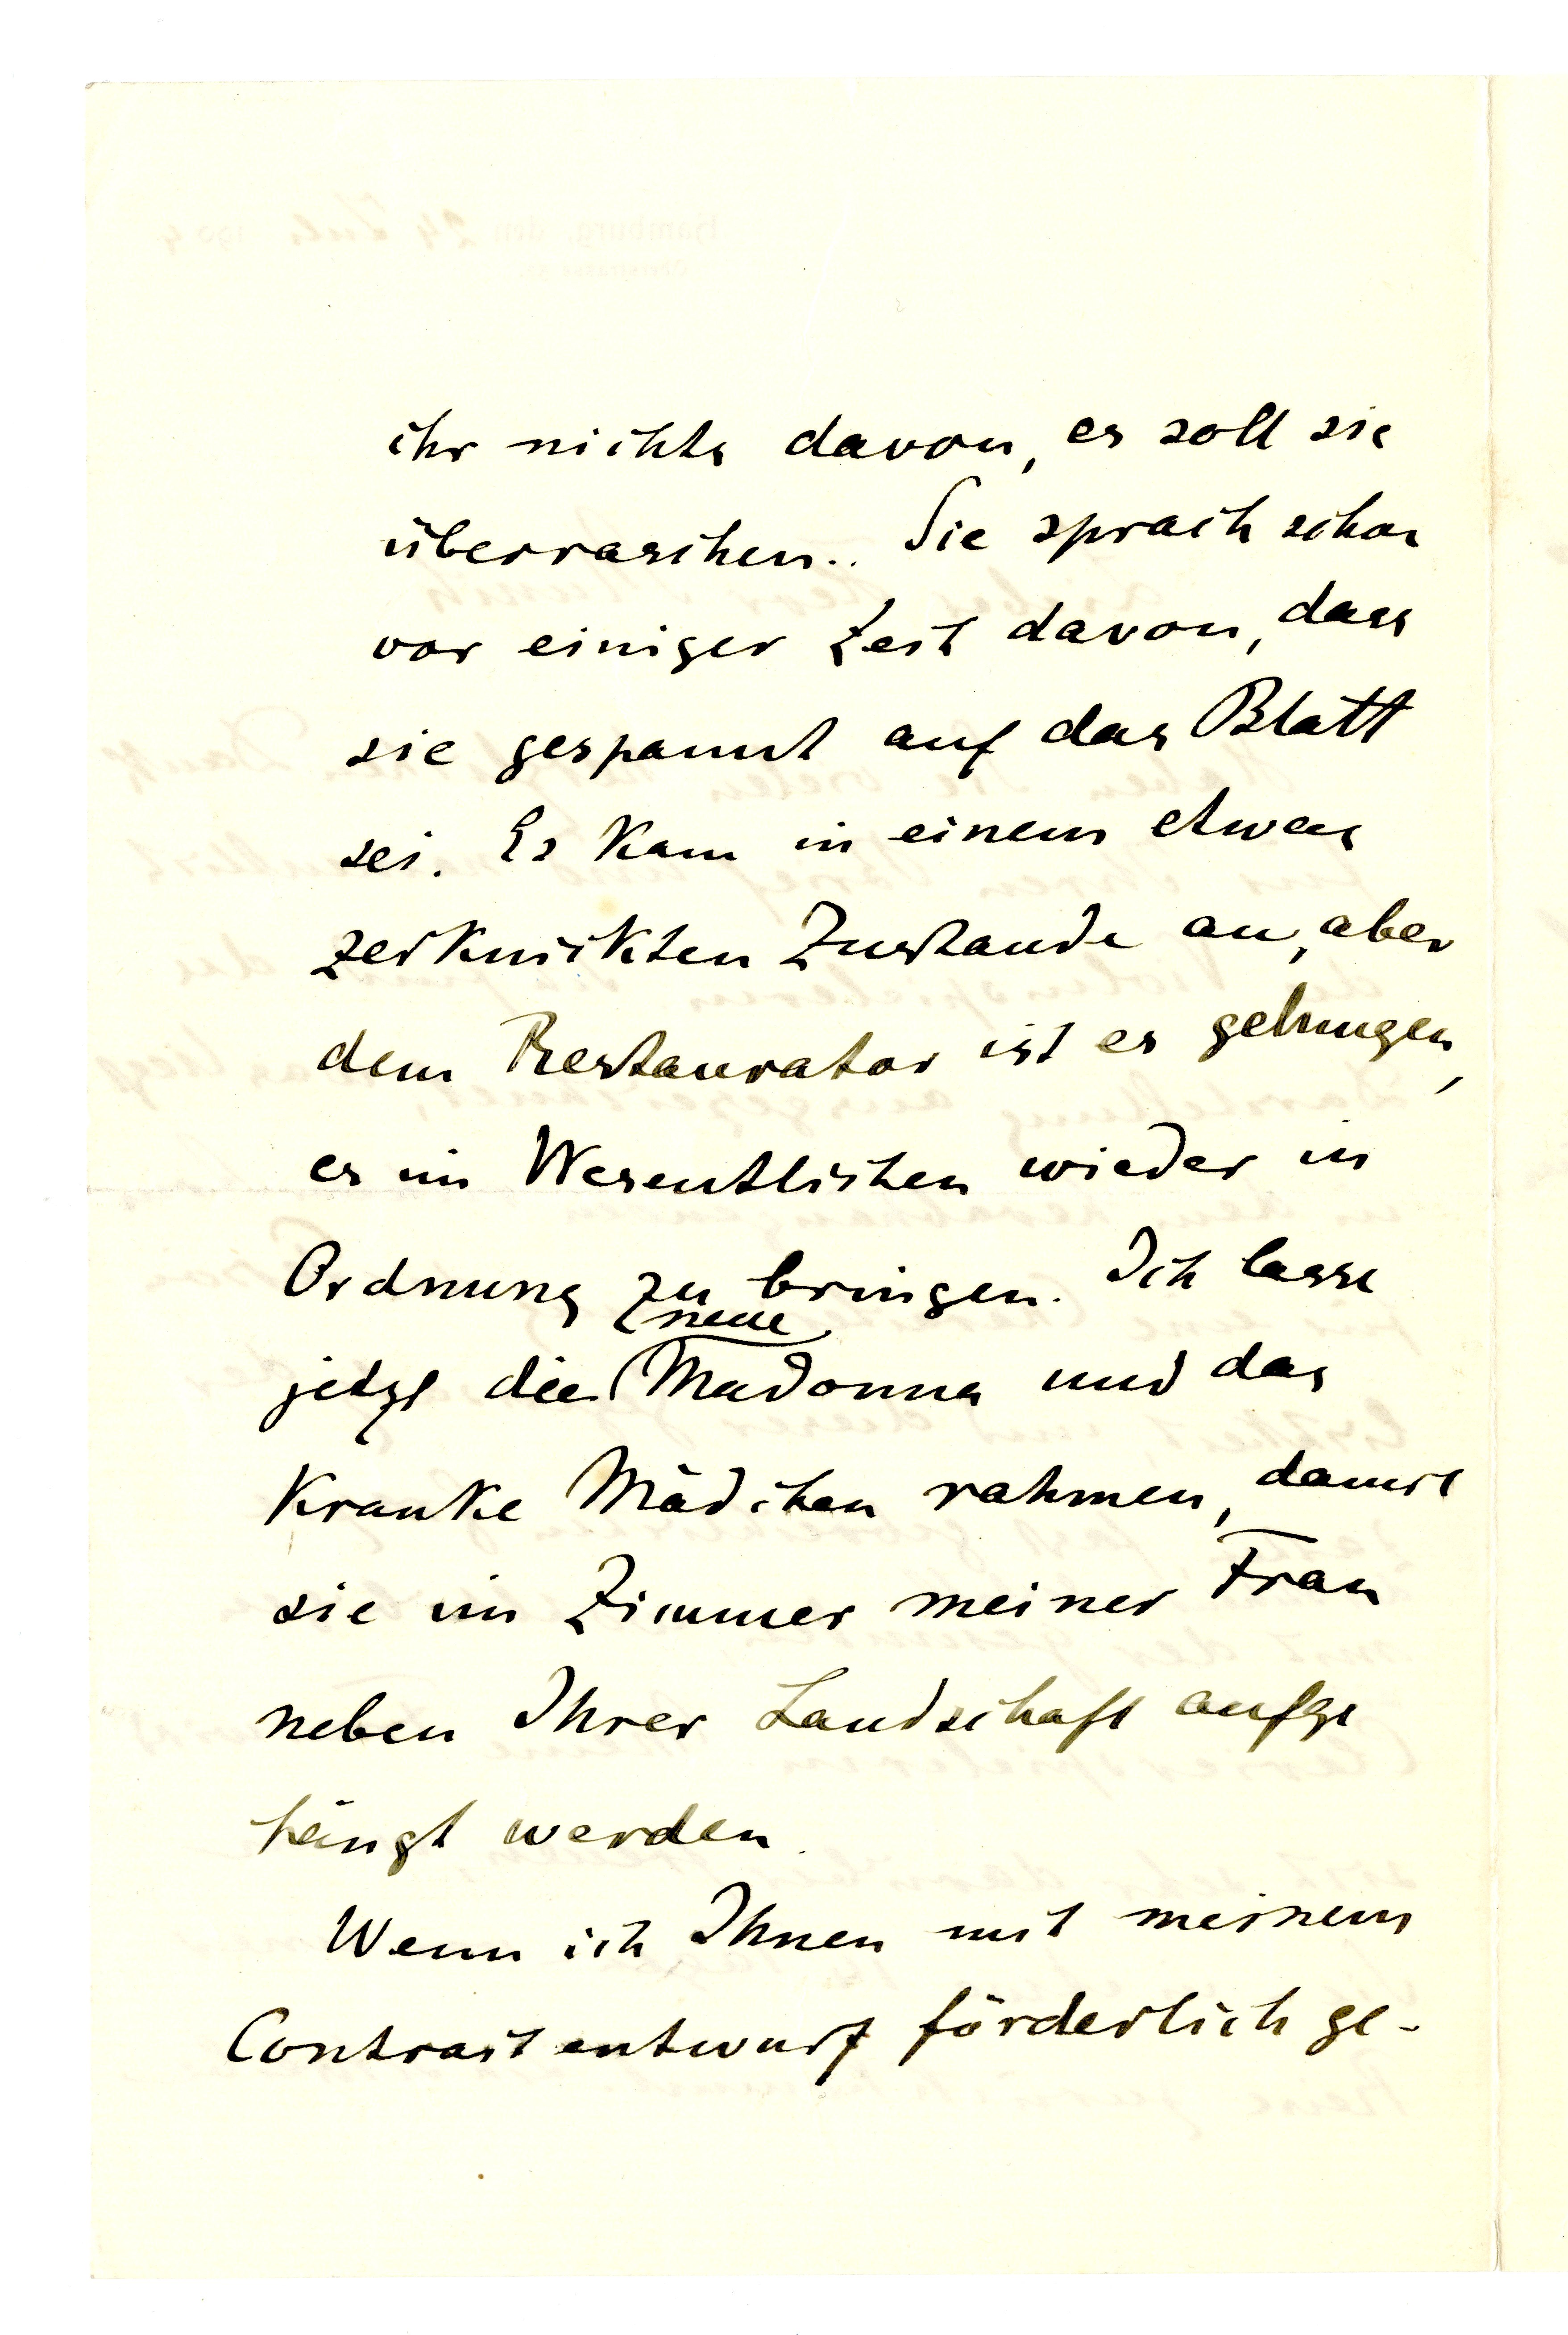 ihr nichts davon, es soll sie
überraschen.. Sie sprach schon
vor einiger Zeit davon, dass
sie gespannt auf das Blatt
sei. Es kam in einem etwas
zerknickten Zustande an, aber
dem Restaurator ist es gelungen,
es im Wesentlichen wieder in
Ordnung zu bringen. Ich lasse
jetzt die neue Madonna und das
Kranke Mädchen rahmen, damit
sie im Zimmer meiner Frau
neben Ihrer Landschaft aufge
hängt werden.
Wenn ich Ihnen mit meinem
Contractentwurf förderlich ge-